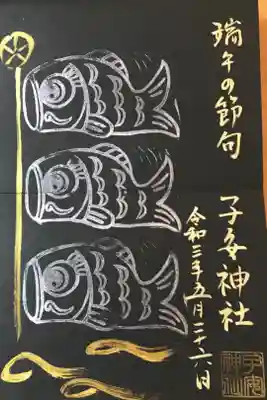 端午の節句
子安神社
令和三年五月二十六日
子安
神社